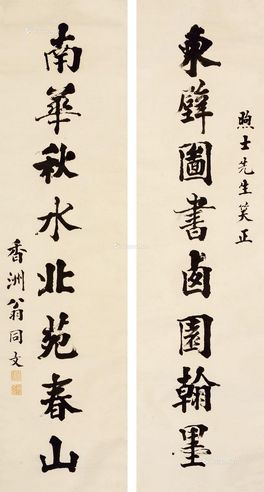 東壁圖書西園翰墨
煦士先生笑正
南華秋水北苑春山
香洲翁同文